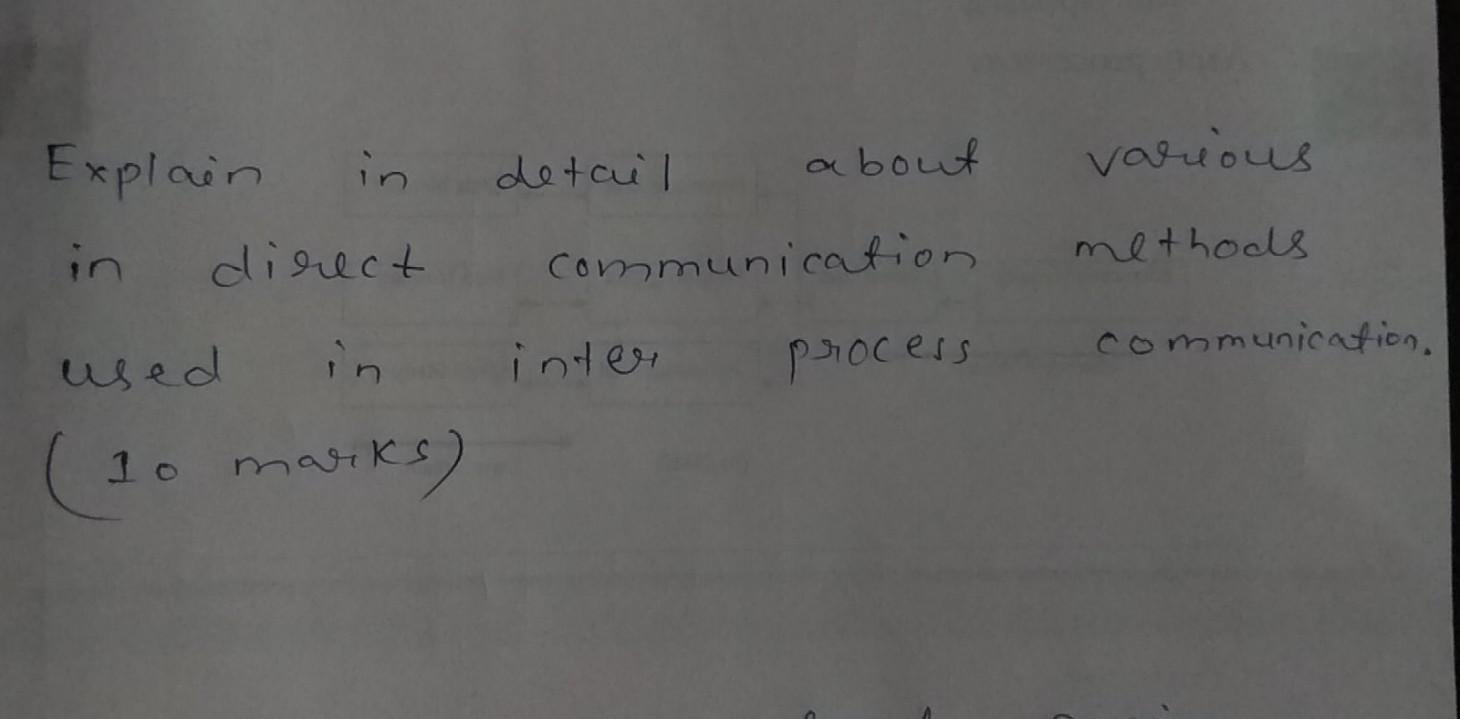 Explain in detail about various
in direct communication methods
used in inter process communication.
(10 marks)